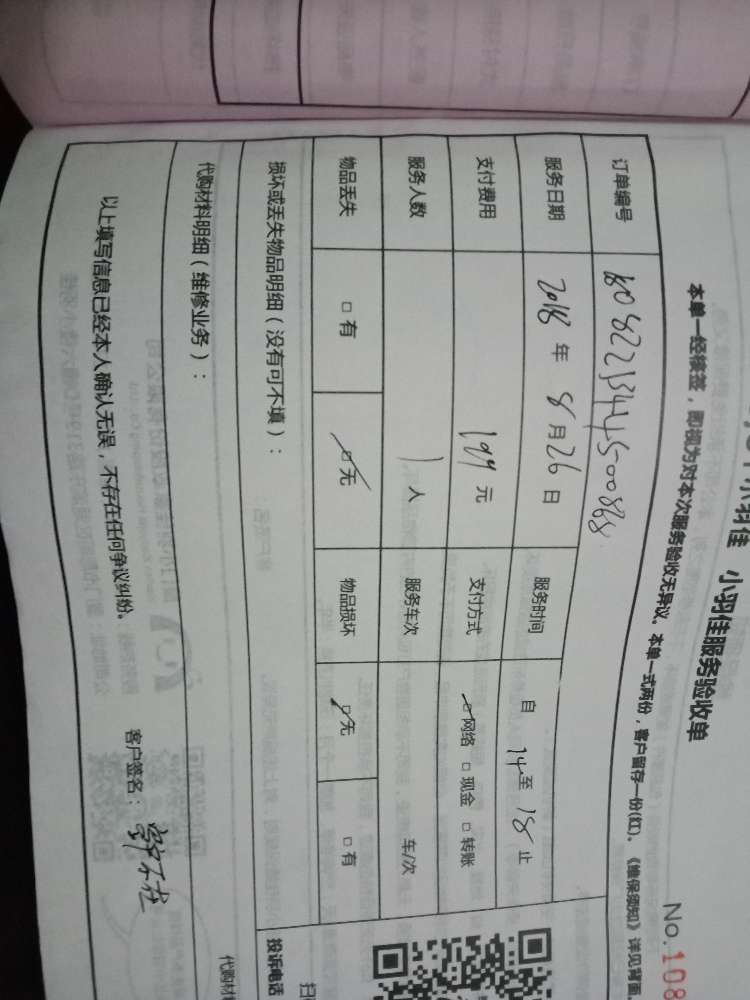 小羽佳 小羽佳服务验收单
No.108
本单一经核签，即视为对本次服务验收无异议。本单一式两份，客户留存一份(红)。《维保须知》详见背面
订单编号
服务日期 2018 年 8 月 26 日 服务时间 自 14 至 18 止
支付费用 199 元 支付方式 ☑网络 □现金 □转账
服务人数 1 人 服务车次 车/次
物品丢失 □有 ☑无 物品损坏 ☑无 □有
损坏或丢失物品明细（没有可不填）：
投诉电话
代购材料明细（维修业务）：
代购材
以上填写信息已经本人确认无误，不存在任何争议纠纷。 客户签名：